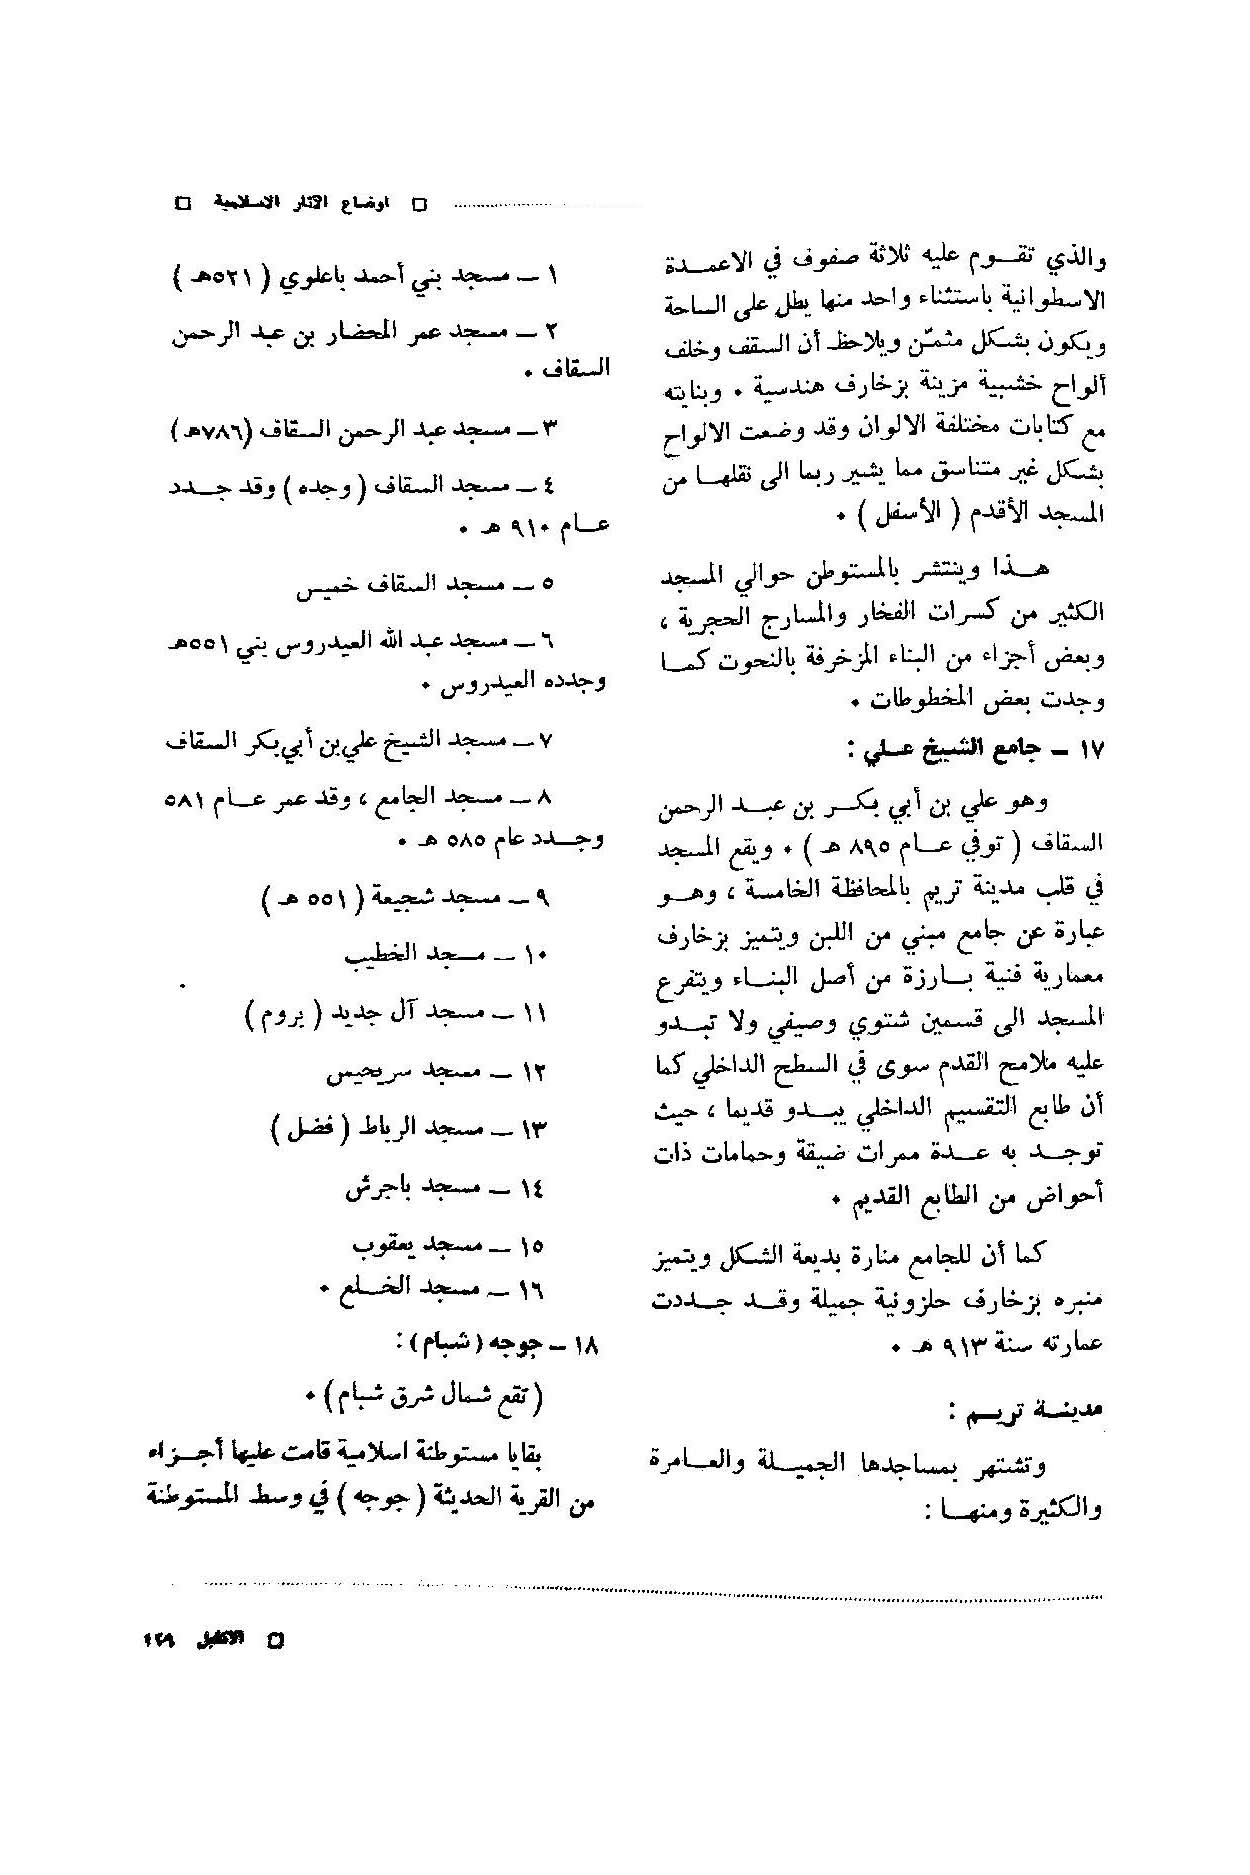 □ اوضاع الآثار الاسلامية □
والذي تقـــوم عليه ثلاثة صفوف في الاعمـــدة
الاسطوانية باستثناء واحد منها يطل على الساحة
ويكون بشكل مثمّن ويلاحظ أن السقف وخلف
ألواح خشبية مزينة بزخارف هندسية . وبنايته
مع كتابات مختلفة الالوان وقد وضعت الالواح
بشكل غير متناسق مما يشير ربما الى نقلهـا من
المسجد الأقدم ( الأسفل ) .
هـــذا وينتشر بالمستوطن حوالي المسجد
الكثير من كسرات الفخار والمسارج الحجرية ،
وبعض أجزاء من البناء المزخرفة بالنحوت كمـا
وجدت بعض المخطوطات .
١٧ – جامع الشيخ عـلي :
وهو علي بن أبي بكـــر بن عبـــد الرحمن
السقاف ( توفي عـــام ٨٩٥ هـ ) . ويقع المسجد
في قلب مدينة تريم بالمحافظة الخامسة ، وهـــو
عبارة عن جامع مبني من اللبن ويتميز بزخارف
معمارية فنية بـــارزة من أصل البنـــاء ويتفرع
المسجد الى قسمين شتوي وصيفي ولا تبـــدو
عليه ملامح القدم سوى في السطح الداخلي كما
أن طابع التقسيم الداخلي يبـــدو قديما ، حيث
توجـــد به عـــدة ممرات ضيقة وحمامات ذات
أحواض من الطابع القديم .
كما أن للجامع منارة بديعة الشكل ويتميز
منبره بزخارف حلزونية جميلة وقـــد جـــددت
عمارته سنة ٩١٣ هـ .
مدينـة تريـم :
وتشتهر بمساجدها الجميـــلة والعـــامرة
والكثيرة ومنهـــا :
١ – مسجد بني أحمد باعلوي ( ٥٢١هـ )
٢ – مسجد عمر المحضار بن عبد الرحمن
السقاف .
٣ – مسجد عبد الرحمن السقاف (٧٨٦هـ )
٤ – مسجد السقاف ( وجده ) وقد جـــدد
عـــام ٩١٠ هـ .
٥ – مسجد السقاف خميس
٦ – مسجد عبد الله العيدروس بني ٥٥١هـ
وجدده العيدروس .
٧ – مسجد الشيخ علي بن أبي بكر السقاف
٨ – مسجد الجامع ، وقد عمر عـــام ٥٨١
وجـــدد عام ٥٨٥ هـ .
٩ – مسجد شجيعة ( ٥٥١ هـ )
١٠ – مسجد الخطيب
١١ – مسجد آل جديد ( بروم )
١٢ – مسجد سرجيس
١٣ – مسجد الرباط ( فضل )
١٤ – مسجد باجرش
١٥ – مسجد يعقوب
١٦ – مسجد الخـــلع .
١٨ – جوجه ( شبام ) :
( تقع شمال شرق شبام ) .
بقايا مستوطنة اسلامية قامت عليها أجـــزاء
من القرية الحديثة ( جوجه ) في وسط المستوطنة
□ الاكليل ١٢٩